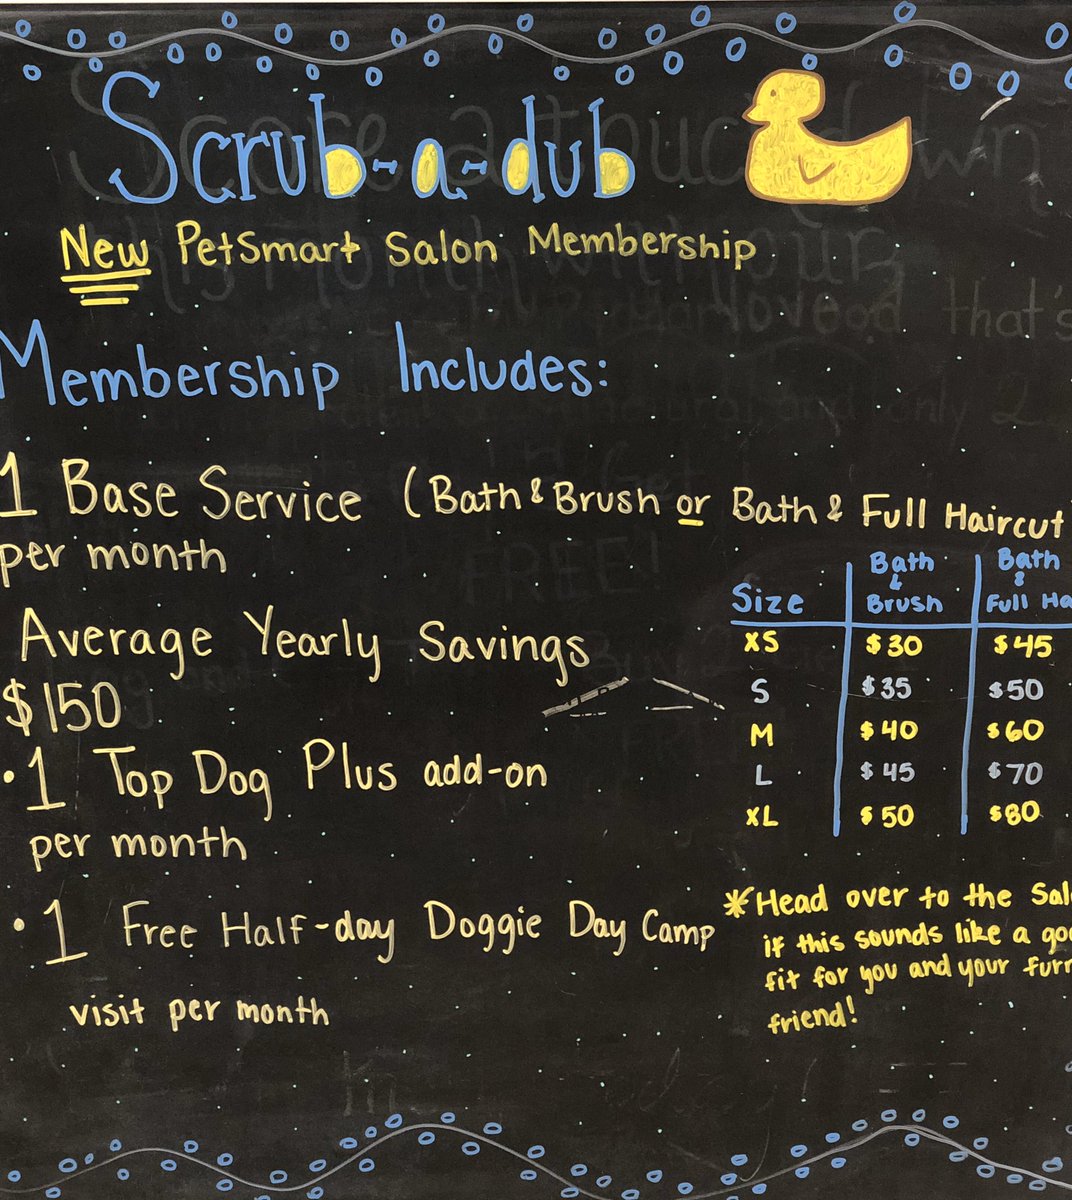 Scrub-a-dub
New PetSmart Salon Membership
Membership Includes:
1 Base Service (Bath & Brush or Bath & Full Haircut
per month
Average Yearly Savings
$150
• 1 Top Dog Plus add-on
per month
• 1 Free Half-day Doggie Day Camp
visit per month
Size Bath & Brush Bath & Full Ha
XS $30 $45
S $35 $50
M $40 $60
L $45 $70
XL $50 $80
*Head over to the Sal
if this sounds like a goo
fit for you and your furr
friend!